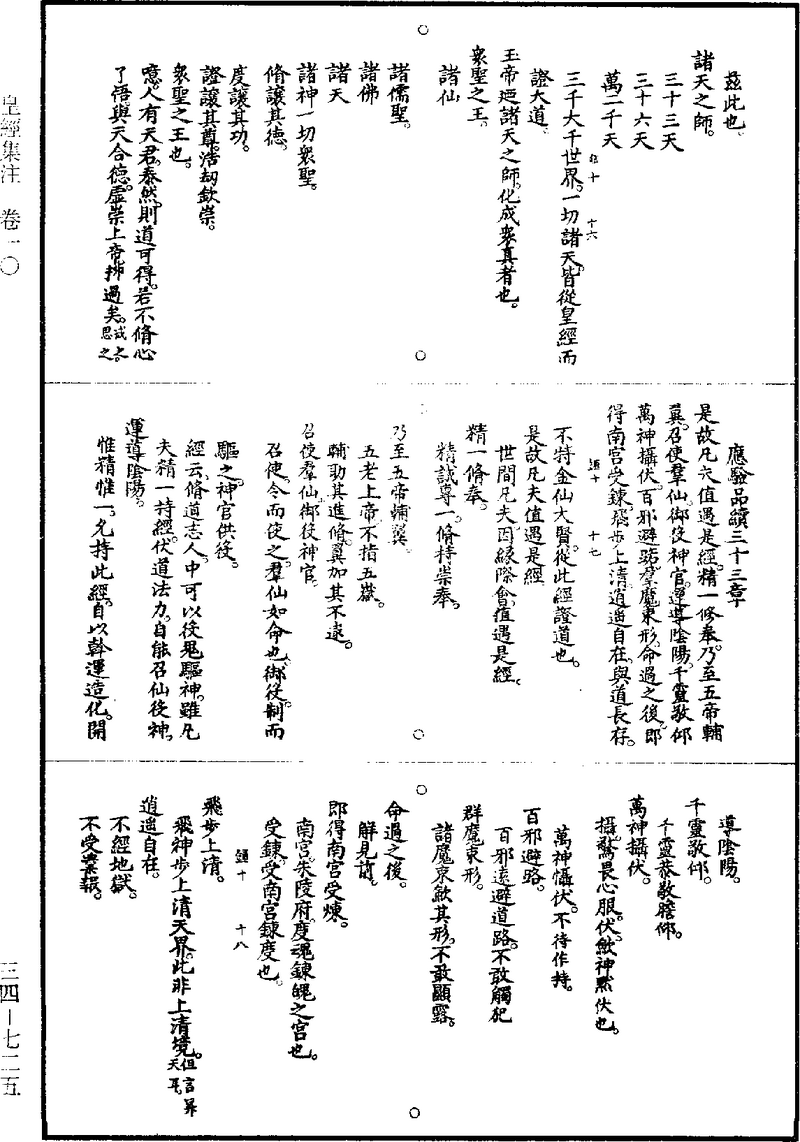 茲此也
諸天之師。
三十三天
三十六天
萬二千天
三千大千世界。一切諸天。皆從皇經而
十 十六
證大道
玉帝廼諸天之師。化成衆真者也。
衆聖之王。
諸仙
諸儒聖。
諸佛
諸天
諸神一切衆聖。
脩讓其德。
度讓其功。
證讓其尊。浩劫欽崇。
衆聖之王也。
噫。人有天君。泰然。則道可得。若不脩心
了悟。與天合德。虛崇上帝。拚過矣。試之思之
應驗品續三十三章
是故凡夫值遇是經。精一修奉。乃至五帝輔
翼。召使羣仙。御役神官。運導陰陽。千靈敬仰
萬神攝伏。百邪避路。羣魔束形。命過之後。即
十 十七
得南宮受鍊。飛步上清。逍遥自在。與道長存。
不特金仙大賢。從此經證道也。
是故凡夫值遇是經
世間凡夫。因緣際會。值遇是經。
精一脩奉。
精誠專一。脩持崇奉。
乃至五帝輔翼
五老上帝。不指五嶽。
輔助其進脩。翼加其不逮。
召使羣仙。御役神官。
召使。令而使之。羣仙如命也。御役。制而
驅之。神官供役。
經云。脩道志人。中可以役鬼驅神。雖凡
夫精一持經。伏道法力。自能召仙役神。
運導陰陽。
惟精惟一。久持此經。自以斡運造化。開
導陰陽。
千靈敬仰。
千靈恭敬瞻仰。
萬神攝伏。
攝。驚畏心服。伏。斂神默伏也。
萬神懾伏。不待作持。
百邪避路。
百邪遠避道路。不敢觸犯
群魔束形。
諸魔束斂其形。不敢顯露。
命過之後。
解見前。
即得南宮受煉。
南宮。朱陵府。度魂鍊魄之宮也。
受鍊。受南宮鍊度也。
十 十八
飛步上清。
飛神步上清天界。此非上清境。但言昇天耳。
逍遥自在。
不經地獄。
不受業報。
皇經集注 卷一〇
三四—七二五